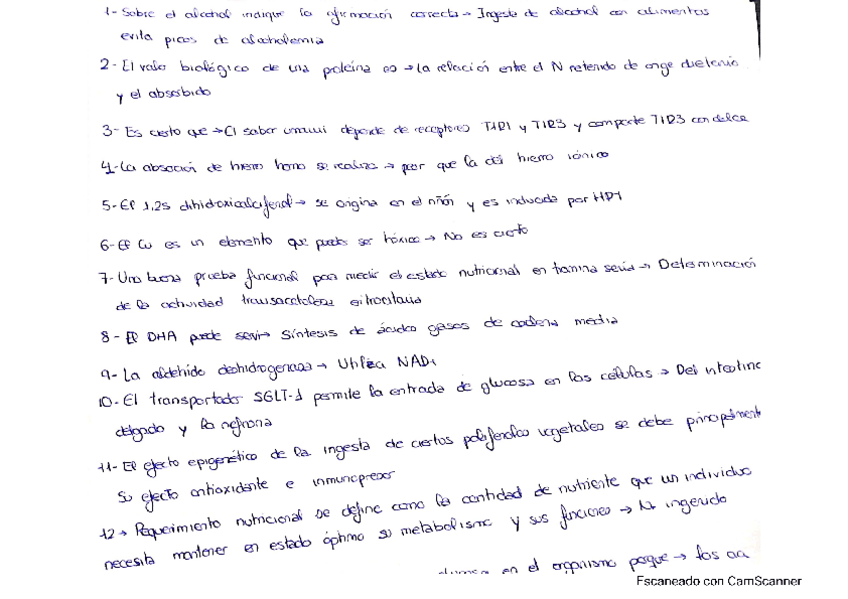 1- Sobre el alcohol indique la afirmación correcta → Ingesta de alcohol con alimentos
evita picos de alcoholemia
2- El valor biológico de una proteína es → la relación entre el N retenido de origen dietario
y el absorbido
3- Es cierto que → El sabor umami depende de receptores T1R1 y T1R3 y comparte T1R3 con dulce
4- La absorción de hierro hemo se realiza → peor que la del hierro iónico
5- El 1,25 dihidroxicalciferol → se origina en el riñón y es inducida por
6- El Cu es un elemento que puede ser tóxico → No es cierto
7- Una buena prueba funcional para medir el estado nutricional en tiamina sería → Determinación
de la actividad transacetolasa eritrocitaria
8- El DHA puede servir → Síntesis de ácidos grasos de cadena media
9- La aldehido deshidrogenasa → Utiliza NAD+
10- El transportador SGLT-1 permite la entrada de glucosa en las células → Del intestino
delgado y la nefrona
11- El efecto epigenético de la ingesta de ciertos polifenoles vegetales se debe principalment
Su efecto antioxidante e
12 → Requerimiento nutricional se define como la cantidad de nutriente que un individuo
necesita mantener en estado óptimo su metabolismo y sus funciones → ingerido
en el organismo porque → los aa
Escaneado con CamScanner